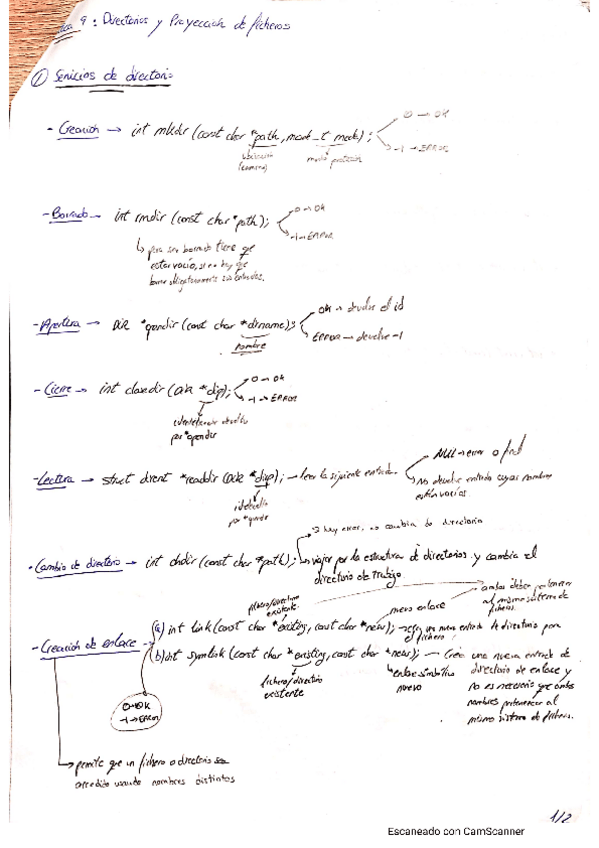 9: Directorios y Proyección de ficheros
① Servicios de directorio
- Creación → int mkdir (const char *path, mode_t mode);
0 → OK
-1 → ERROR
ubicación
(camino)
modo protección
- Borrado → int rmdir (const char *path);
0 → OK
-1 → ERROR
↳ para ser borrado tiene que
estar vacío, si no hay que
borrar obligatoriamente sus entradas.
- Apertura → DIR *opendir (const char *dirname);
OK → devuelve el id
ERROR → devuelve -1
nombre
- Cierre → int closedir (DIR *dirp);
0 → OK
-1 → ERROR
identificador devuelto
por *opendir
- Lectura → struct dirent *readdir (DIR *dirp); → leer la siguiente entrada.
NULL → error o final
No devuelve entrada cuyos nombres
están vacíos
id devuelto
por *opendir
Si hay error, no cambia de directorio
- Cambio de directorio → int chdir (const char *path); ↳ viajar por la estructura de directorios y cambia el
directorio de trabajo
fichero/directorio
existente
nuevo enlace
ambos deben pertenecer
al mismo sistema de
ficheros
- Creación de enlace
(a) int link (const char *existing, const char *new); → crea un nueva entrada de directorio para
el fichero
(b) int symlink (const char *existing, const char *new); → Crea una nueva entrada de
directorio de enlace y
no es necesario que ambos
nombres pertenezcan al
mismo sistema de ficheros.
fichero/directorio
existente
↳ enlace simbólico
nuevo
0 → OK
-1 → ERROR
→ permite que un fichero o directorio sea
accedido usando nombres distintos
1/2
Escaneado con CamScanner